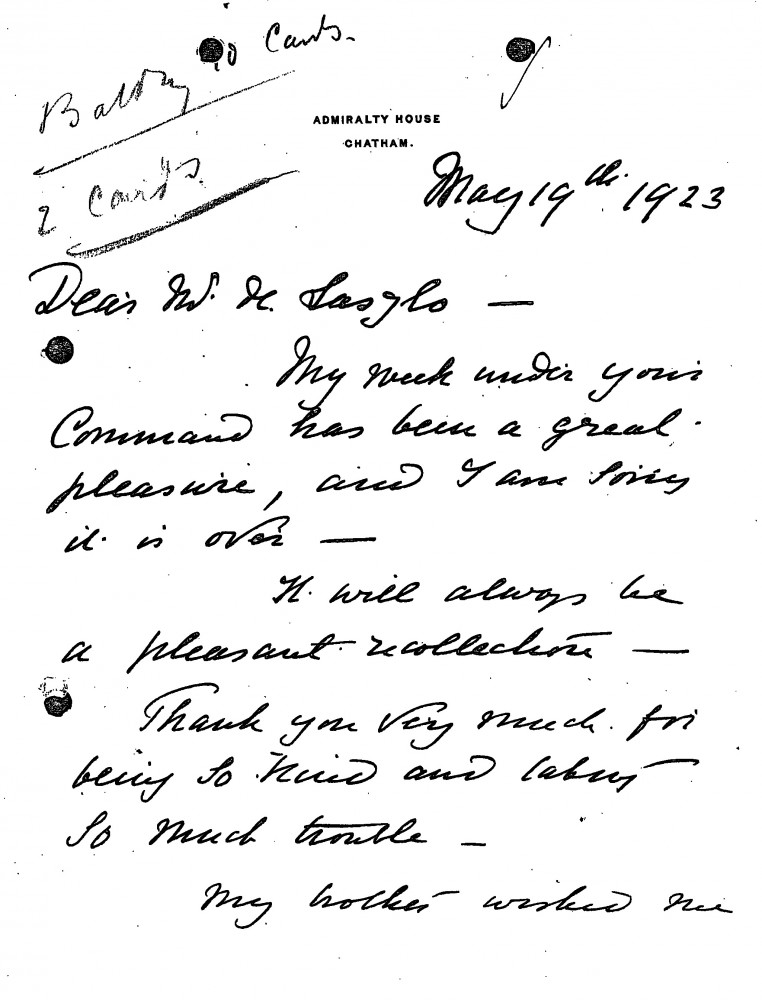 Cards.
Baldry
2 Cards.
ADMIRALTY HOUSE
CHATHAM.
May 19th. 1923
Dear Mr. de Laszlo —
My week under your
Command has been a great
pleasure, and I am sorry
it is over —
It will always be
a pleasant recollection —
Thank you very much for
being so kind and taking
so much trouble —
My brother wished me